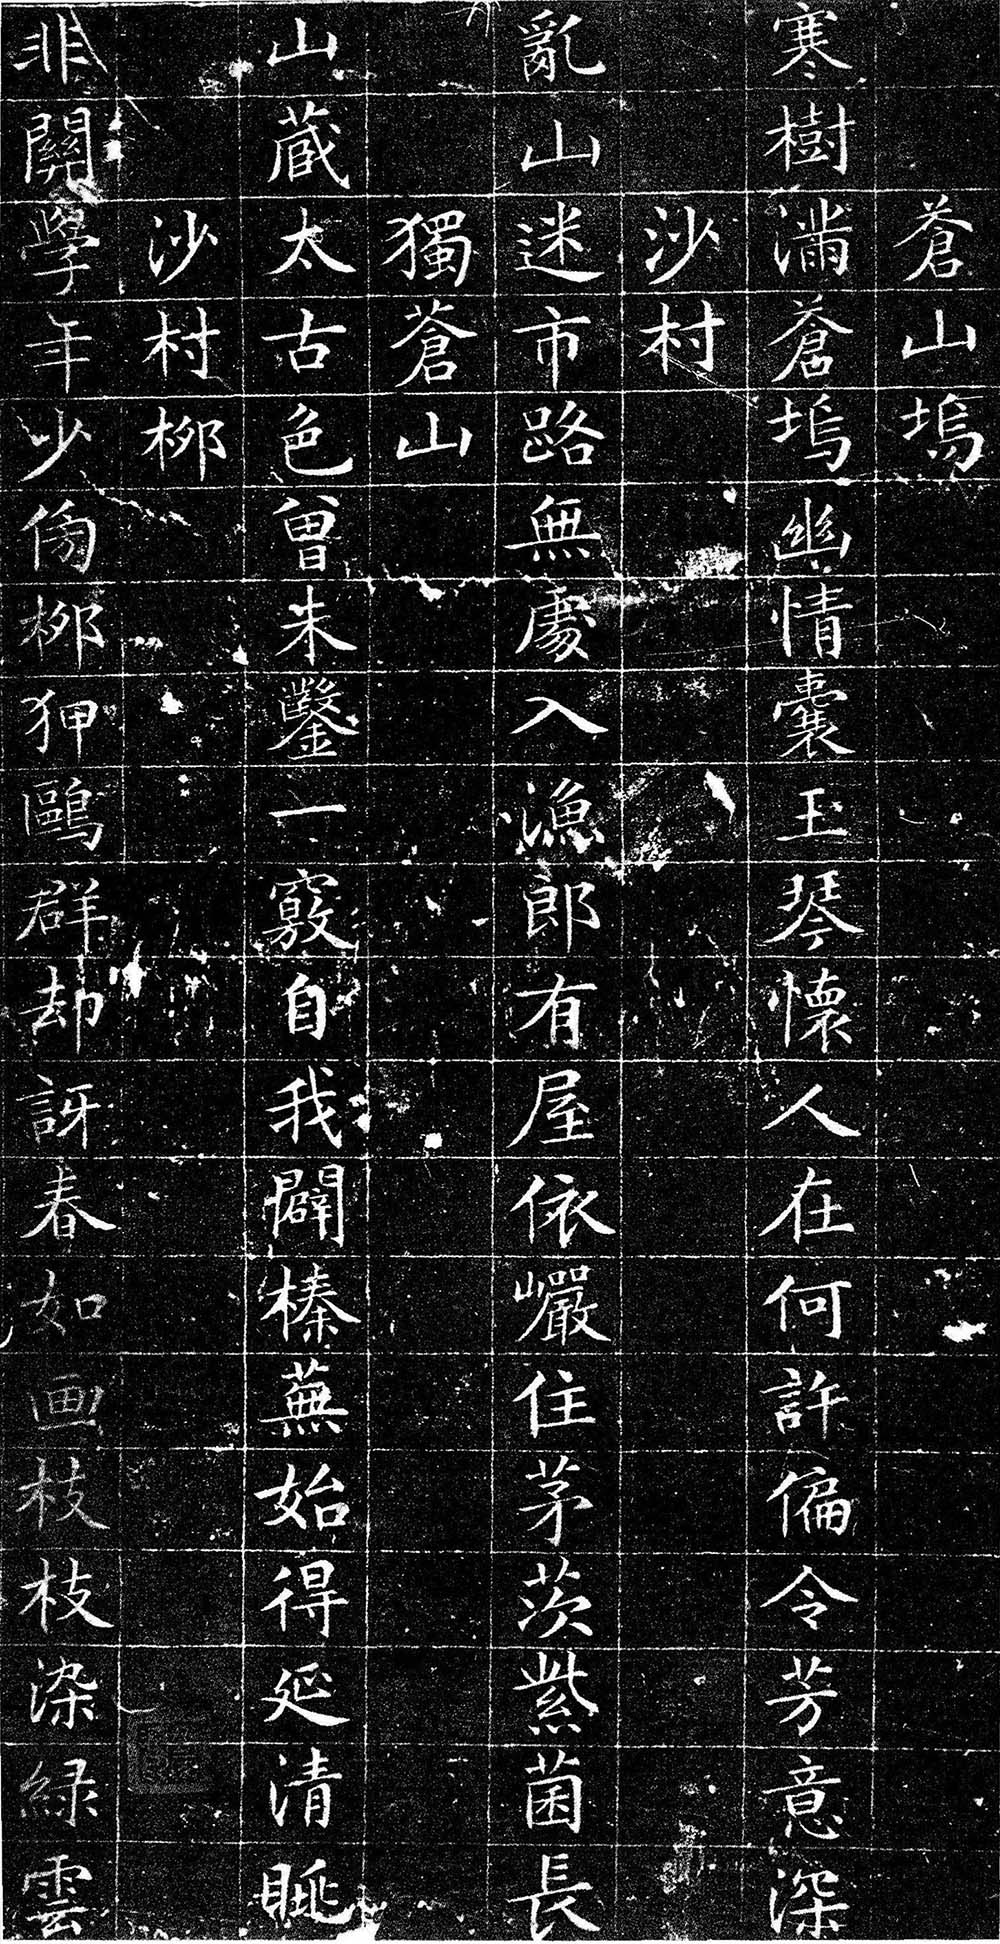 蒼山塢
寒樹滿蒼塢幽情囊玉琴懷人在何許偏令芳意深
沙村
亂山迷市路無處入漁郎有屋依巖住茅茨紫菌長
獨蒼山
山蔵太古色曾未鑿一竅自我闢榛蕪始得延清眺
沙村栁
非關學年少傍栁狎鷗群却訝春如画枝枝染緑雲